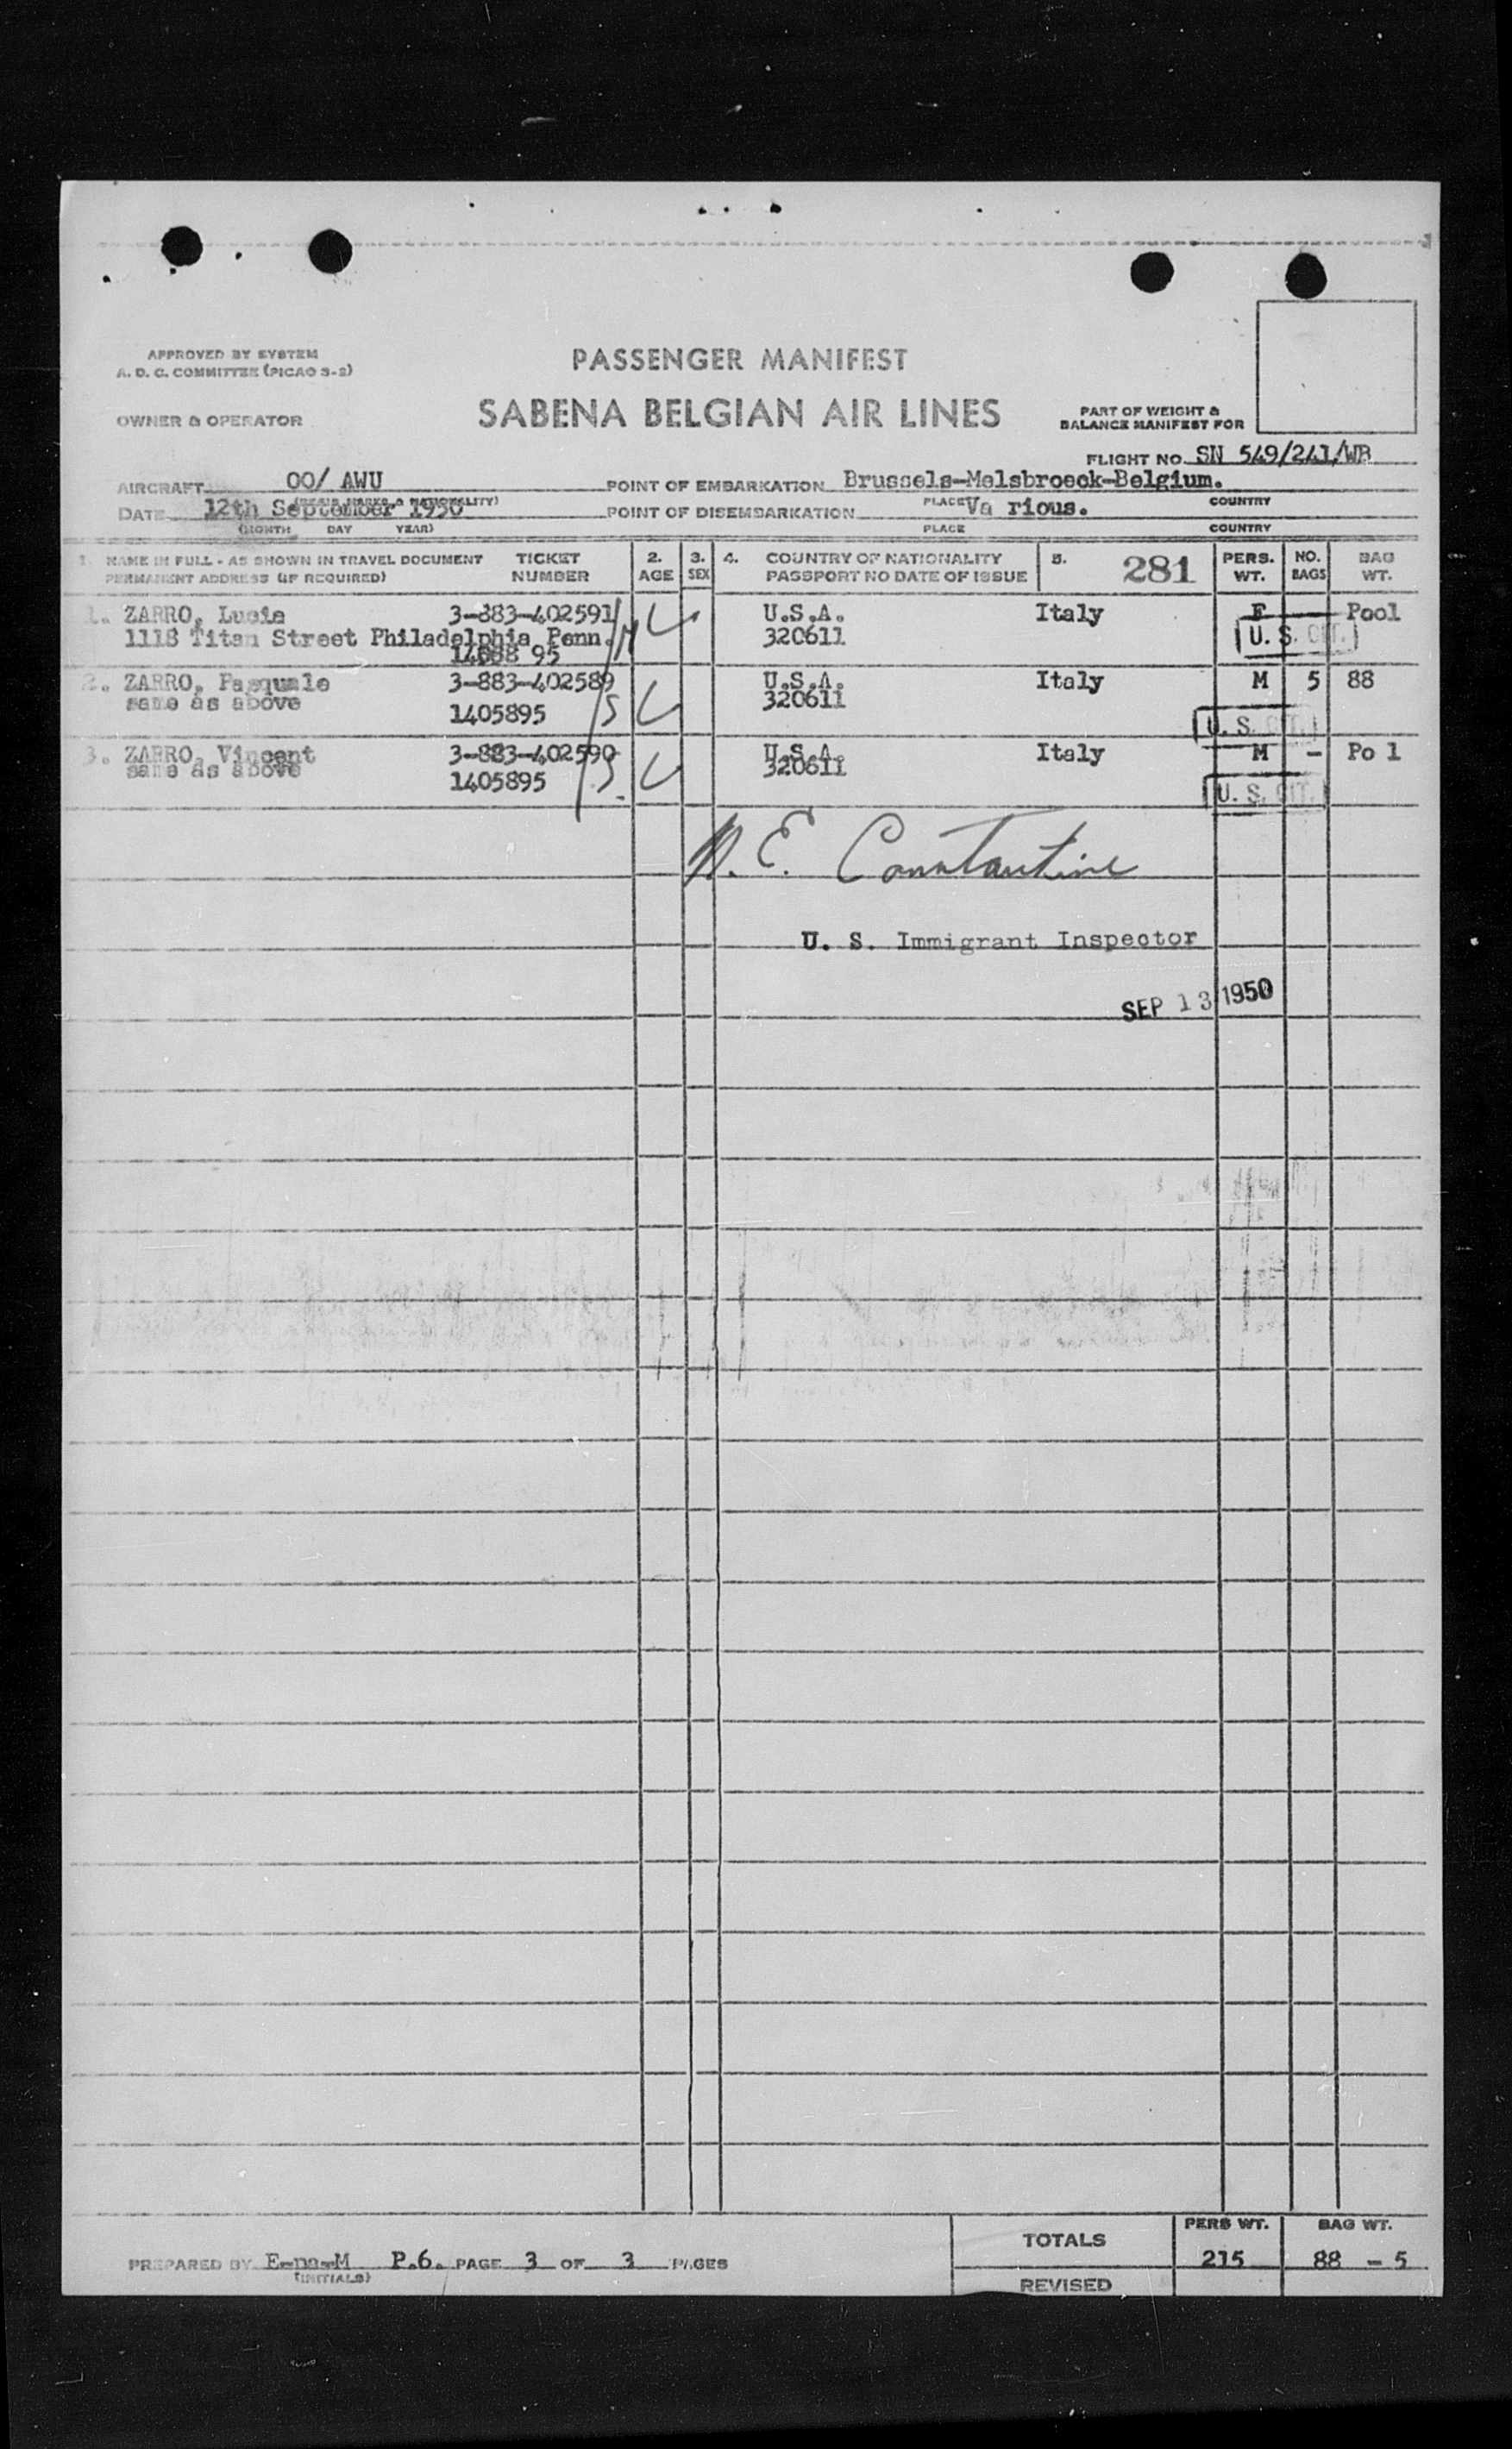 APPROVED BY SYSTEM
A. D. C. COMMITTEE (PICAO S-2)
PASSENGER MANIFEST
OWNER & OPERATOR
SABENA BELGIAN AIR LINES
PART OF WEIGHT &
BALANCE MANIFEST FOR
FLIGHT NO. SN 549/241/WB
AIRCRAFT OO/ AWU POINT OF EMBARKATION Brussels-Melsbroeck-Belgium.
PLACE COUNTRY
DATE 12th September 1950 POINT OF DISEMBARKATION Va rious.
(MONTH DAY YEAR) PLACE COUNTRY
1. NAME IN FULL - AS SHOWN IN TRAVEL DOCUMENT TICKET 2. 3. 4. COUNTRY OF NATIONALITY 5. 281 PERS. NO. BAG
PERMANENT ADDRESS (IF REQUIRED) NUMBER AGE SEX PASSPORT NO DATE OF ISSUE WT. BAGS WT.
1. ZARRO, Lucia 3-883-402591 U.S.A. Italy F Pool
1118 Titan Street Philadelphia Penn. M 320611 U. S. CIT.
95
2. ZARRO, Pasquale 3-883-402589 U.S.A. Italy M 5 88
same as above 320611
1405895 S U. S. CIT.
3. ZARRO, Vincent 3-883-402590 U.S.A. Italy M - Po l
same as above 320611
1405895 S U. S. CIT.
E. Constantine
U. S. Immigrant Inspector
SEP 13 1950
TOTALS PERS WT. BAG WT.
PREPARED BY E-na-M P.6. PAGE 3 OF 3 PAGES 215 88 - 5
(INITIALS) REVISED